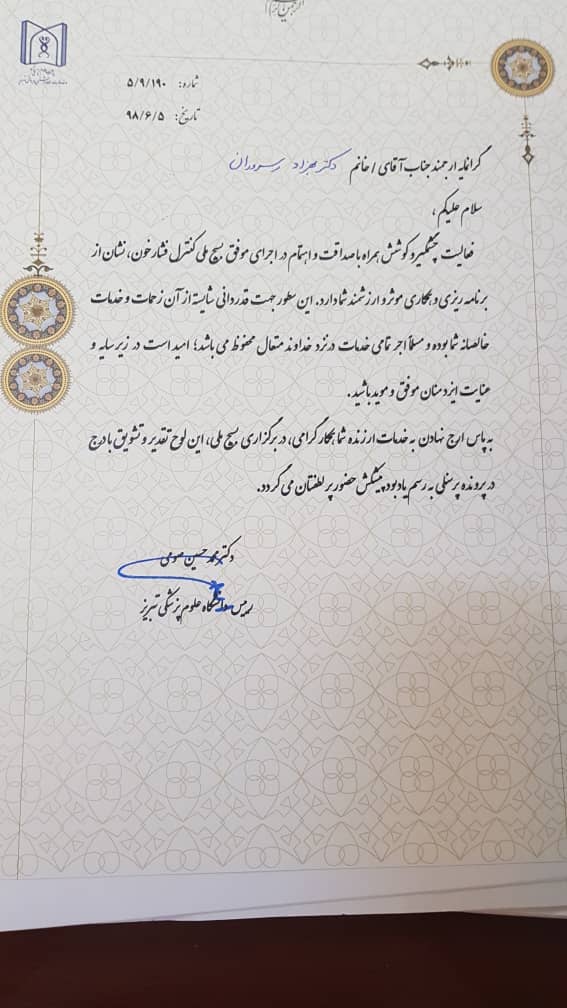 شماره: ۵/۹/۱۹۰
تاریخ: ۹۸/۶/۵
گرانمایه ارجمند جناب آقای / خانم دکتر بهزاد
سلام علیکم ،
فعالیت چشمگیر و کوشش همراه با صداقت و اهتمام در اجرای موفق بسیج ملی کنترل فشار خون، نشان از
برنامه ریزی و همکاری موثر و ارزشمند شما دارد. این سطور جهت قدردانی شایسته از آن زحمات و خدمات
خالصانه شما بوده و مسلماً اجر تمامی خدمات در نزد خداوند متعال محفوظ می باشد؛ امید است در زیر سایه و
عنایت ایزد منان موفق و موید باشید.
به پاس ارج نهادن به خدمات ارزنده شما همکار گرامی، در برگزاری بسیج ملی، این لوح تقدیر و تشویق با درج
در پرونده پرسنلی به رسم یادبود پیشکش حضور پر لطفتان می گردد.
دکتر محمد حسین صومی
رییس دانشگاه علوم پزشکی تبریز